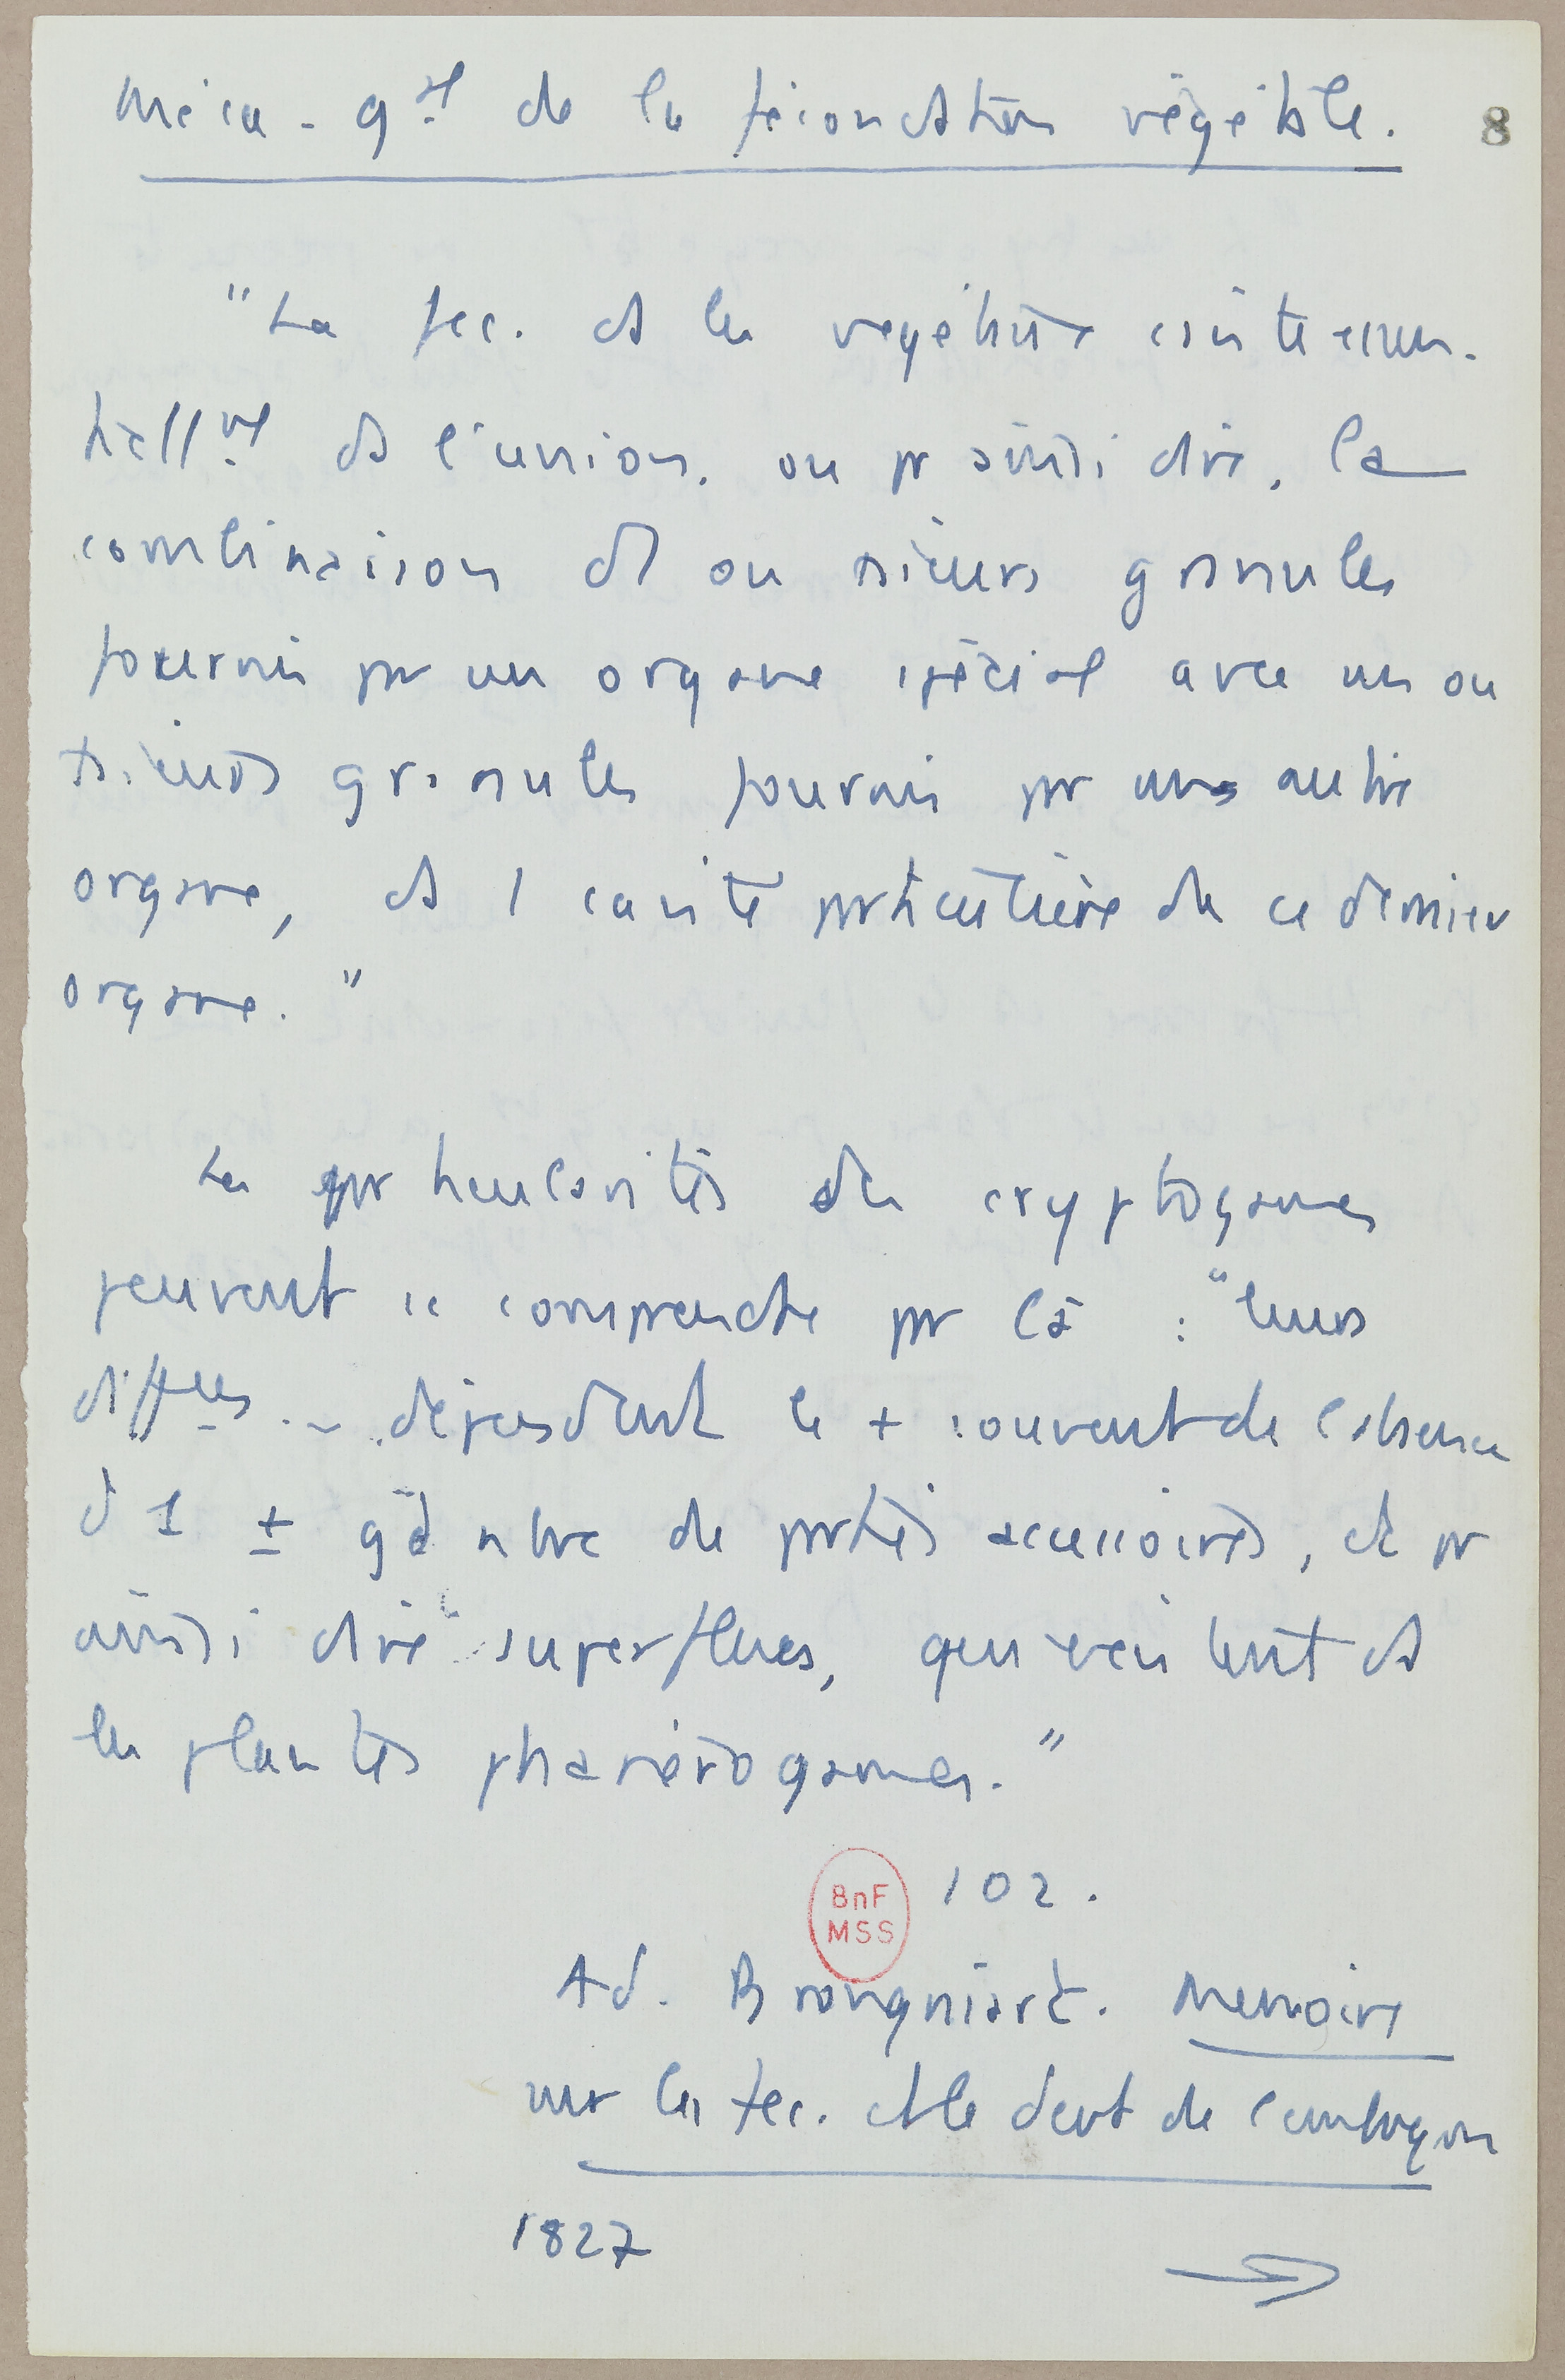 Méca. gal de la fécondation végétale. 8
"La fec. ds les végétaux csiste essen-
tiellmt ds l'union, ou pr ainsi dire, la
combinaison d1 ou psieurs granules
fournis pr un organe spécial avec un ou
psieurs granules fournis pr un autre
organe, ds 1 cavité prticulière de ce dernier
organe."
Les prticularités des cryptogames
peuvent se comprendre pr là : "leurs
difféces ... dépendent le + souvent de l'absence
d 1 ± gd nbre de prties accessoires, et pr
ainsi dire superflues, qui existent ds
les plantes phanérogames."
102.
BnF
MSS
Ad. Brongniart. Mémoire
sur la fec. et le devt de l'embryon
1827
→